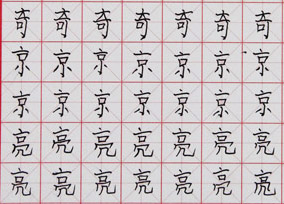 奇奇奇奇奇奇奇
京京京京京京京
京京京京京京京
亮亮亮亮亮亮亮
亮亮亮亮亮亮亮